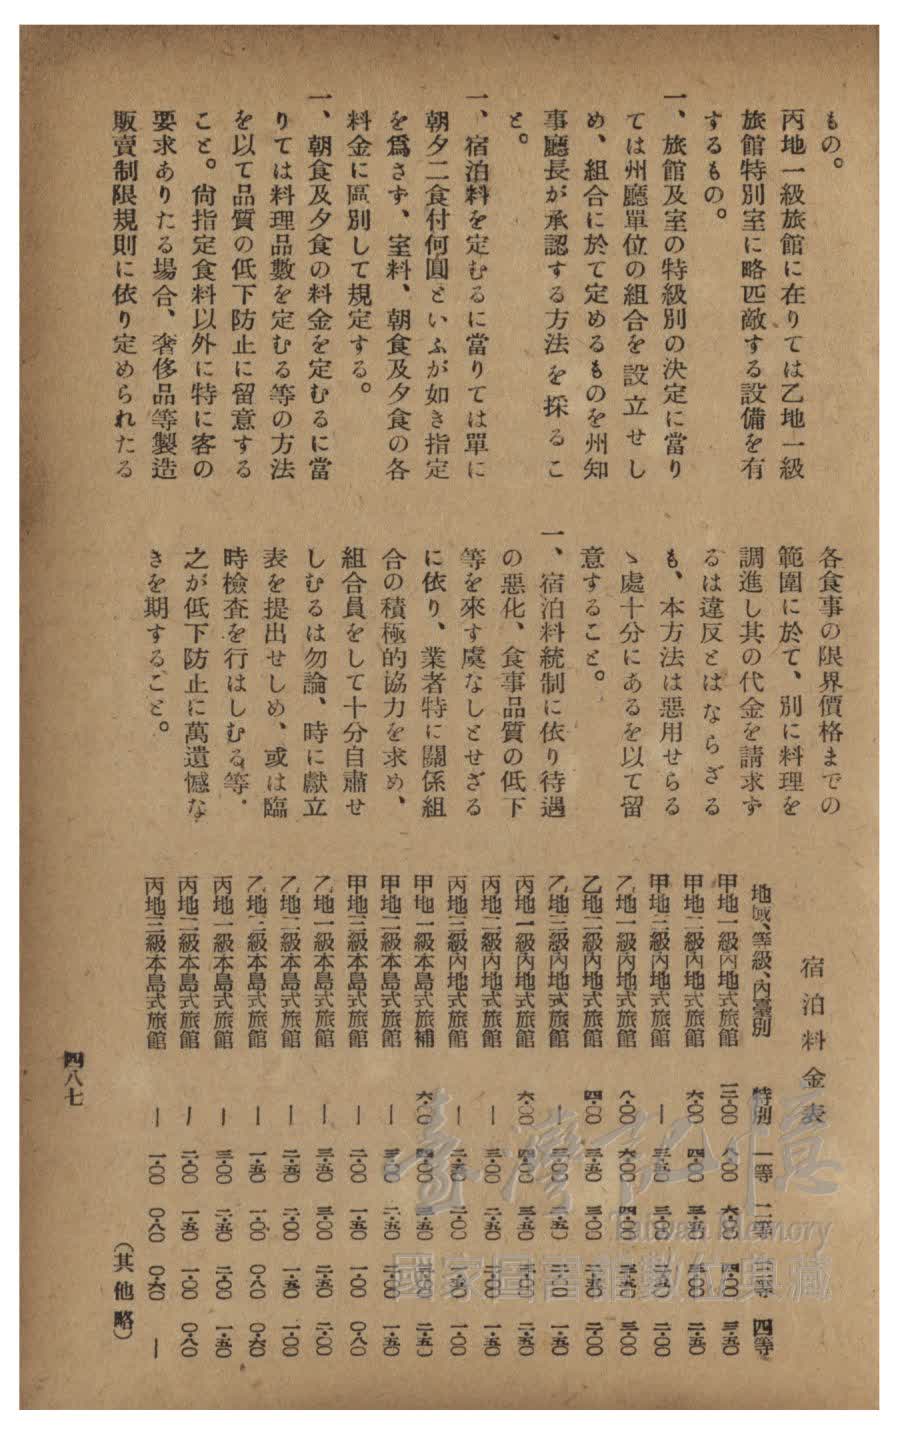 もの。
丙地一級旅館に在りては乙地一級
旅館特別室に略匹敵する設備を有
するもの。
一、旅館及室の特級別の決定に當り
ては州廳單位の組合を設立せし
め、組合に於て定めるものを州知
事廳長が承認する方法を採るこ
と。
一、宿泊料を定むるに當りては單に
朝夕二食付何圓といふが如き指定
を爲さず、室料、朝食及夕食の各
料金に區別して規定する。
一、朝食及夕食の料金を定むるに當
りては料理品數を定むる等の方法
を以て品質の低下防止に留意する
こと。尙指定食料以外に特に客の
要求ありたる場合、奢侈品等製造
販賣制限規則に依り定められたる
各食事の限界價格までの
範圍に於て、別に料理を
調進し其の代金を請求す
るは違反とはならざる
も、本方法は惡用せらる
ゝ處十分にあるを以て留
意すること。
一、宿泊料統制に依り待遇
の惡化、食事品質の低下
等を來す虞なしとせざる
に依り、業者特に關係組
合の積極的協力を求め、
組合員をして十分自肅せ
しむるは勿論、時に獻立
表を提出せしめ、或は臨
時檢査を行はしむる等・
之が低下防止に萬遺憾な
きを期すること。
宿泊料金表
地域、等級、內臺別 特別 一等 二等 三等 四等
甲地一級內地式旅館 八・〇〇 六・〇〇 四・〇〇 三・五〇
甲地二級內地式旅館 六・〇〇 四・〇〇 三・五〇 三・〇〇 二・五〇
甲地三級內地式旅館 ― 三・五〇 三・〇〇 二・五〇 二・〇〇
乙地一級內地式旅館 八・〇〇 六・〇〇 四・〇〇 三・五〇 三・〇〇
乙地二級內地式旅館 四・〇〇 三・五〇 三・〇〇 二・五〇 二・〇〇
乙地三級內地式旅館 ― 三・〇〇 二・五〇 二・〇〇 一・五〇
丙地一級內地式旅館 六・〇〇 四・〇〇 三・五〇 三・〇〇 二・五〇
丙地二級內地式旅館 ― 三・〇〇 二・五〇 二・〇〇 一・五〇
丙地三級內地式旅館 ― 二・五〇 二・〇〇 一・五〇 一・〇〇
甲地一級本島式旅補 六・〇〇 四・〇〇 三・五〇 三・〇〇 二・五〇
甲地二級本島式旅館 ― 三・〇〇 二・五〇 二・〇〇 一・五〇
甲地三級本島式旅館 ― 二・〇〇 一・五〇 一・〇〇 〇・八〇
乙地一級本島式旅館 ― 三・五〇 三・〇〇 二・五〇 二・〇〇
乙地二級本島式旅館 ― 二・五〇 二・〇〇 一・五〇 一・〇〇
乙地三級本島式旅館 ― 一・五〇 一・〇〇 〇・八〇 〇・六〇
丙地一級本島式旅館 ― 三・〇〇 二・五〇 二・〇〇 一・五〇
丙地二級本島式旅館 ― 二・〇〇 一・五〇 一・〇〇 〇・八〇
丙地三級本島式旅館 ― 一・〇〇 〇・八〇 〇・六〇 ―
（其他略）
四八七
臺灣記憶
Taiwan Memory
國家圖書館數位典藏